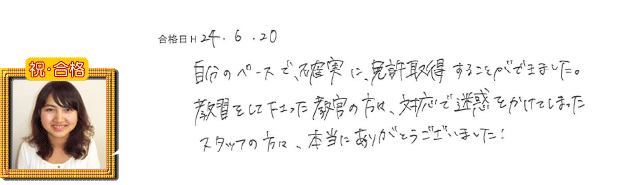 合格日H 24.6.20
祝・合格
自分のペースで、確実に、免許取得することができました。
教習をして下さった教官の方々、対応で迷惑をかけてしまった
スタッフの方々、本当にありがとうございました!